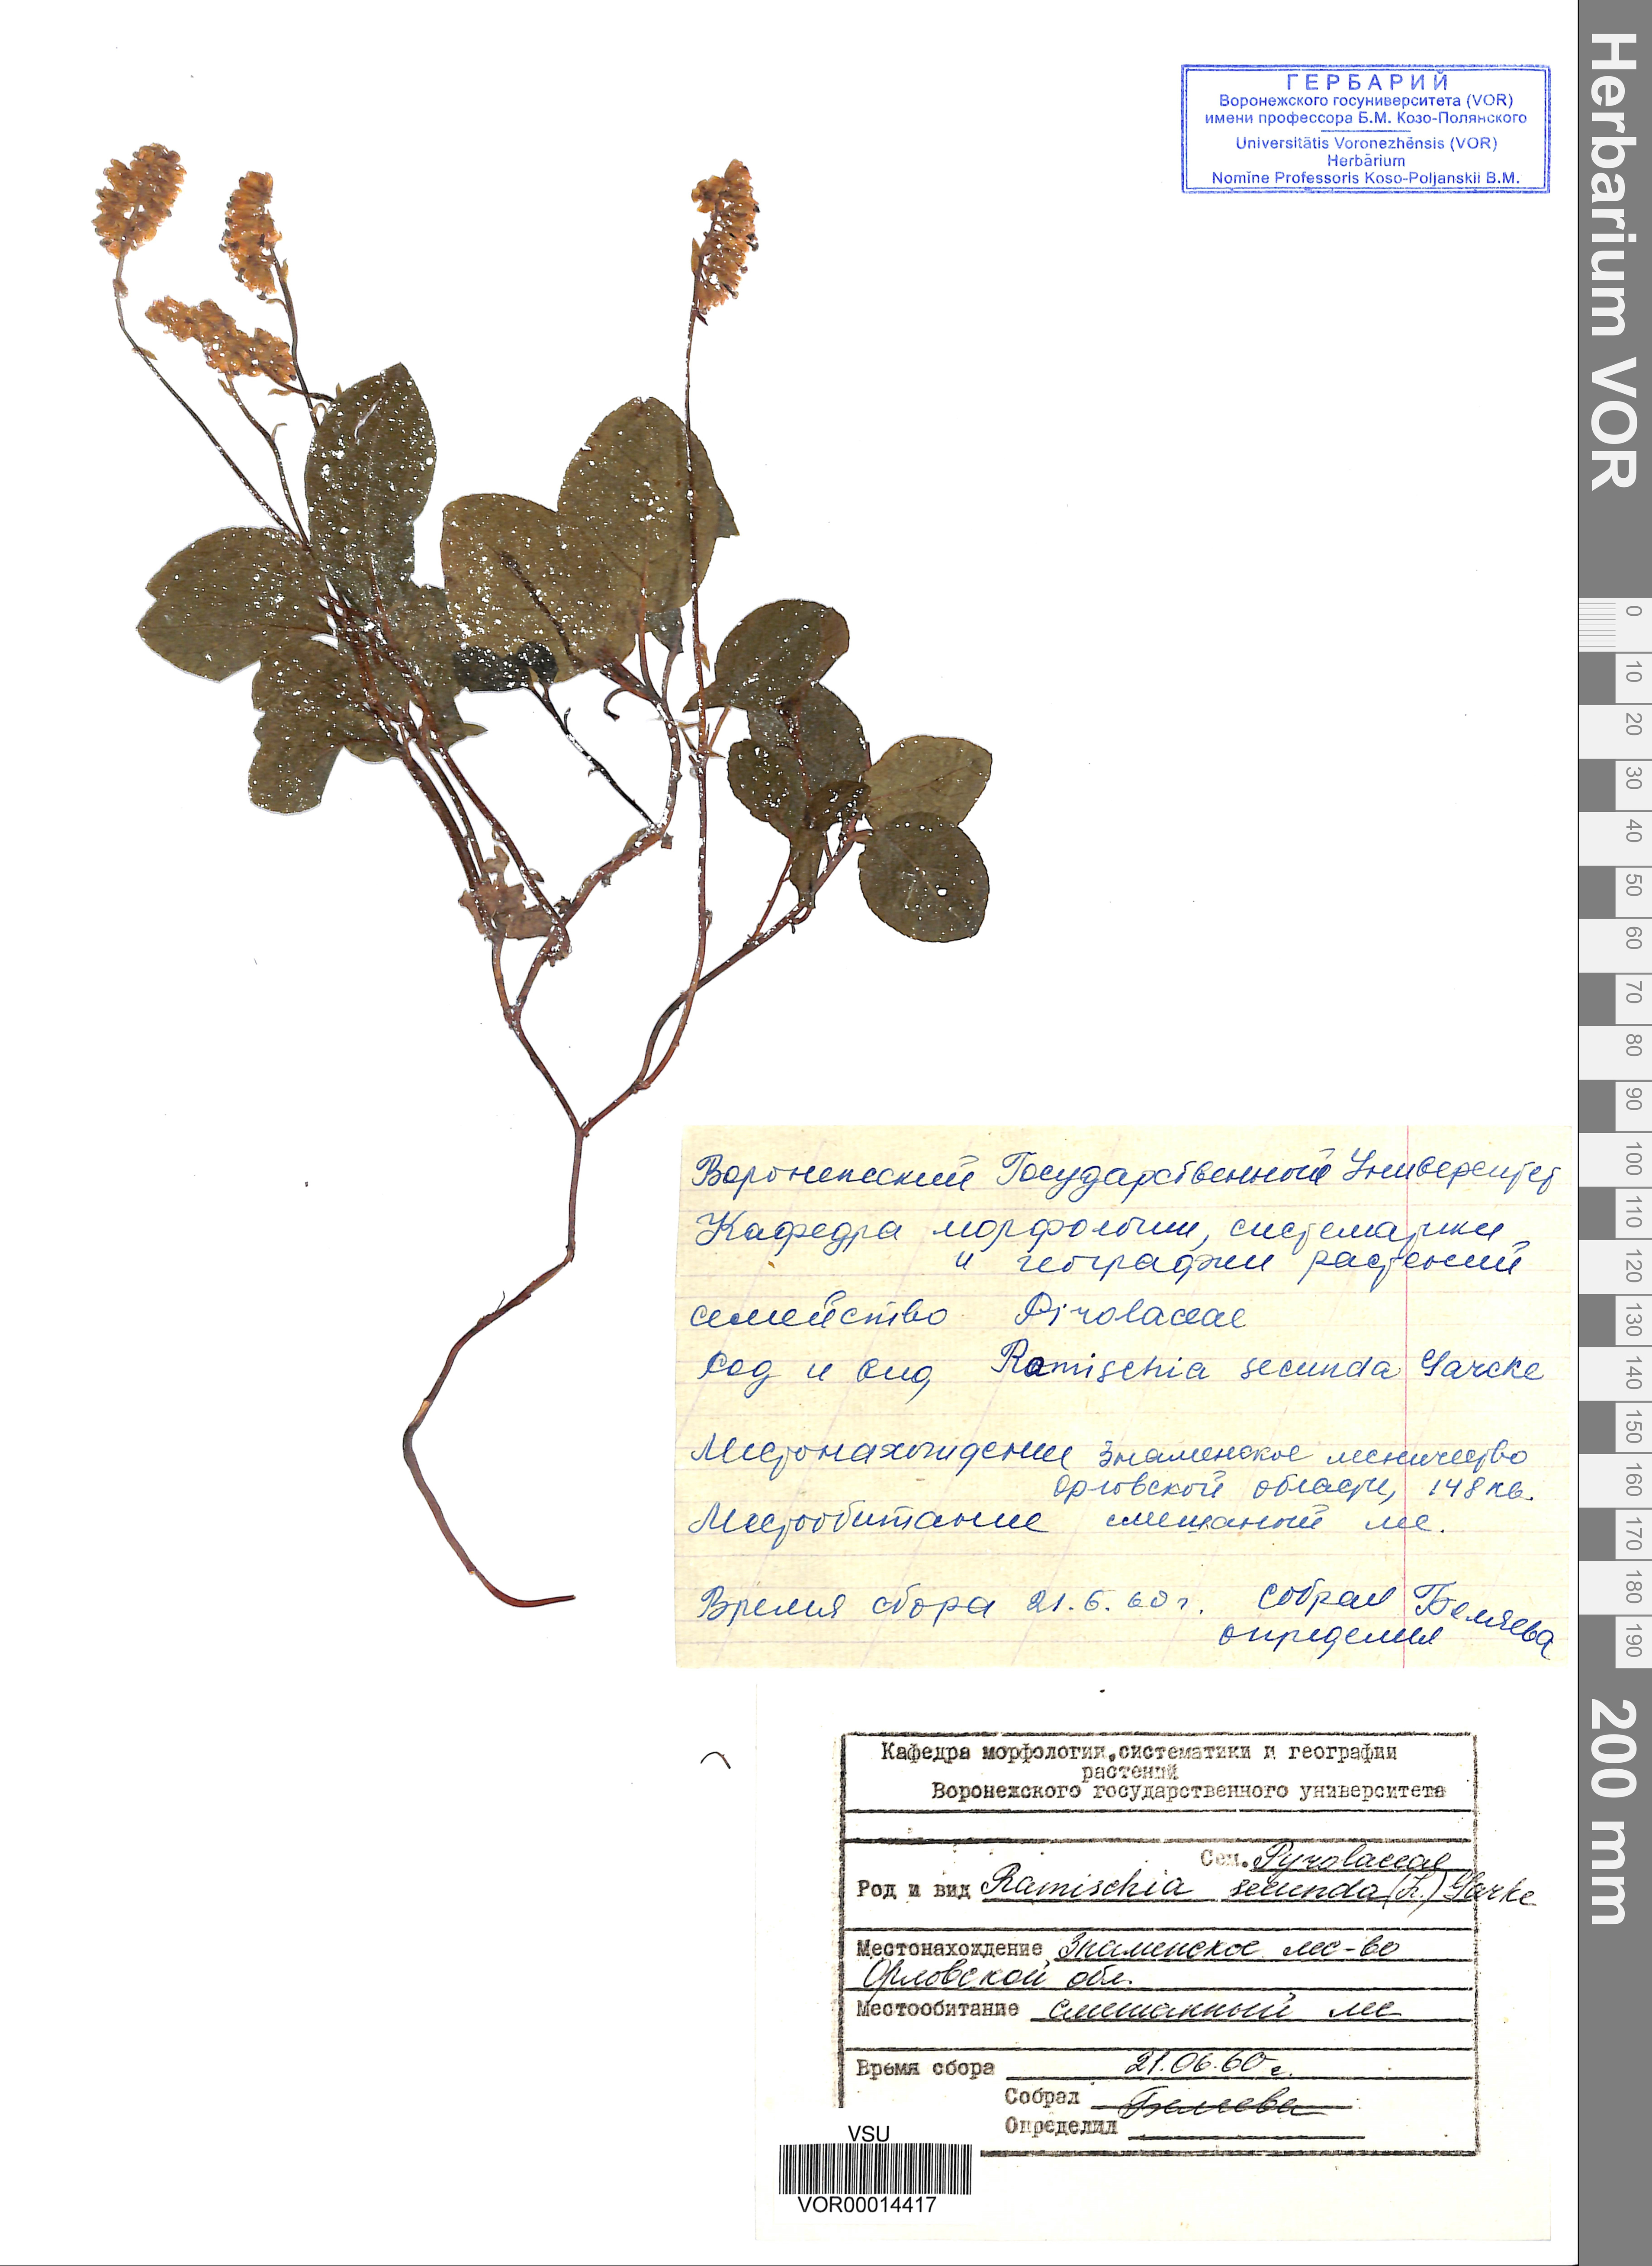 ГЕРБАРИЙ
Воронежского госуниверситета (VOR)
имени профессора Б.М. Козо-Полянского
Universitātis Voronezhēnsis (VOR)
Herbārium
Nomīne Professoris Koso-Poljanskii B.M.
Herbarium VOR
0
10
20
30
40
50
60
70
80
90
100
110
120
130
140
150
160
170
180
190
200 mm
Воронежский Государственный Университет
Кафедра морфологии, систематики
и географии растений
семейство Pirolaceae
Род и вид Ramischia secunda Garcke
Местонахождение Знаменское лесничество
Орловской области, 148 кв.
Местообитание смешаный лес.
Время сбора 21.6.60 г. собрал Беляева
определил
Кафедра морфологии,систематики и географии
растений
Воронежского государственного университета
Сем. Pyrolaceae
Род и вид Ramischia secunda (L.) Garke
Местонахождение Знаменское лес-во
Орловской обл.
Местообитание смешанный лес
Время сбора 21.06.60 г.
Собрал Беляева
Определил
VSU
VOR00014417